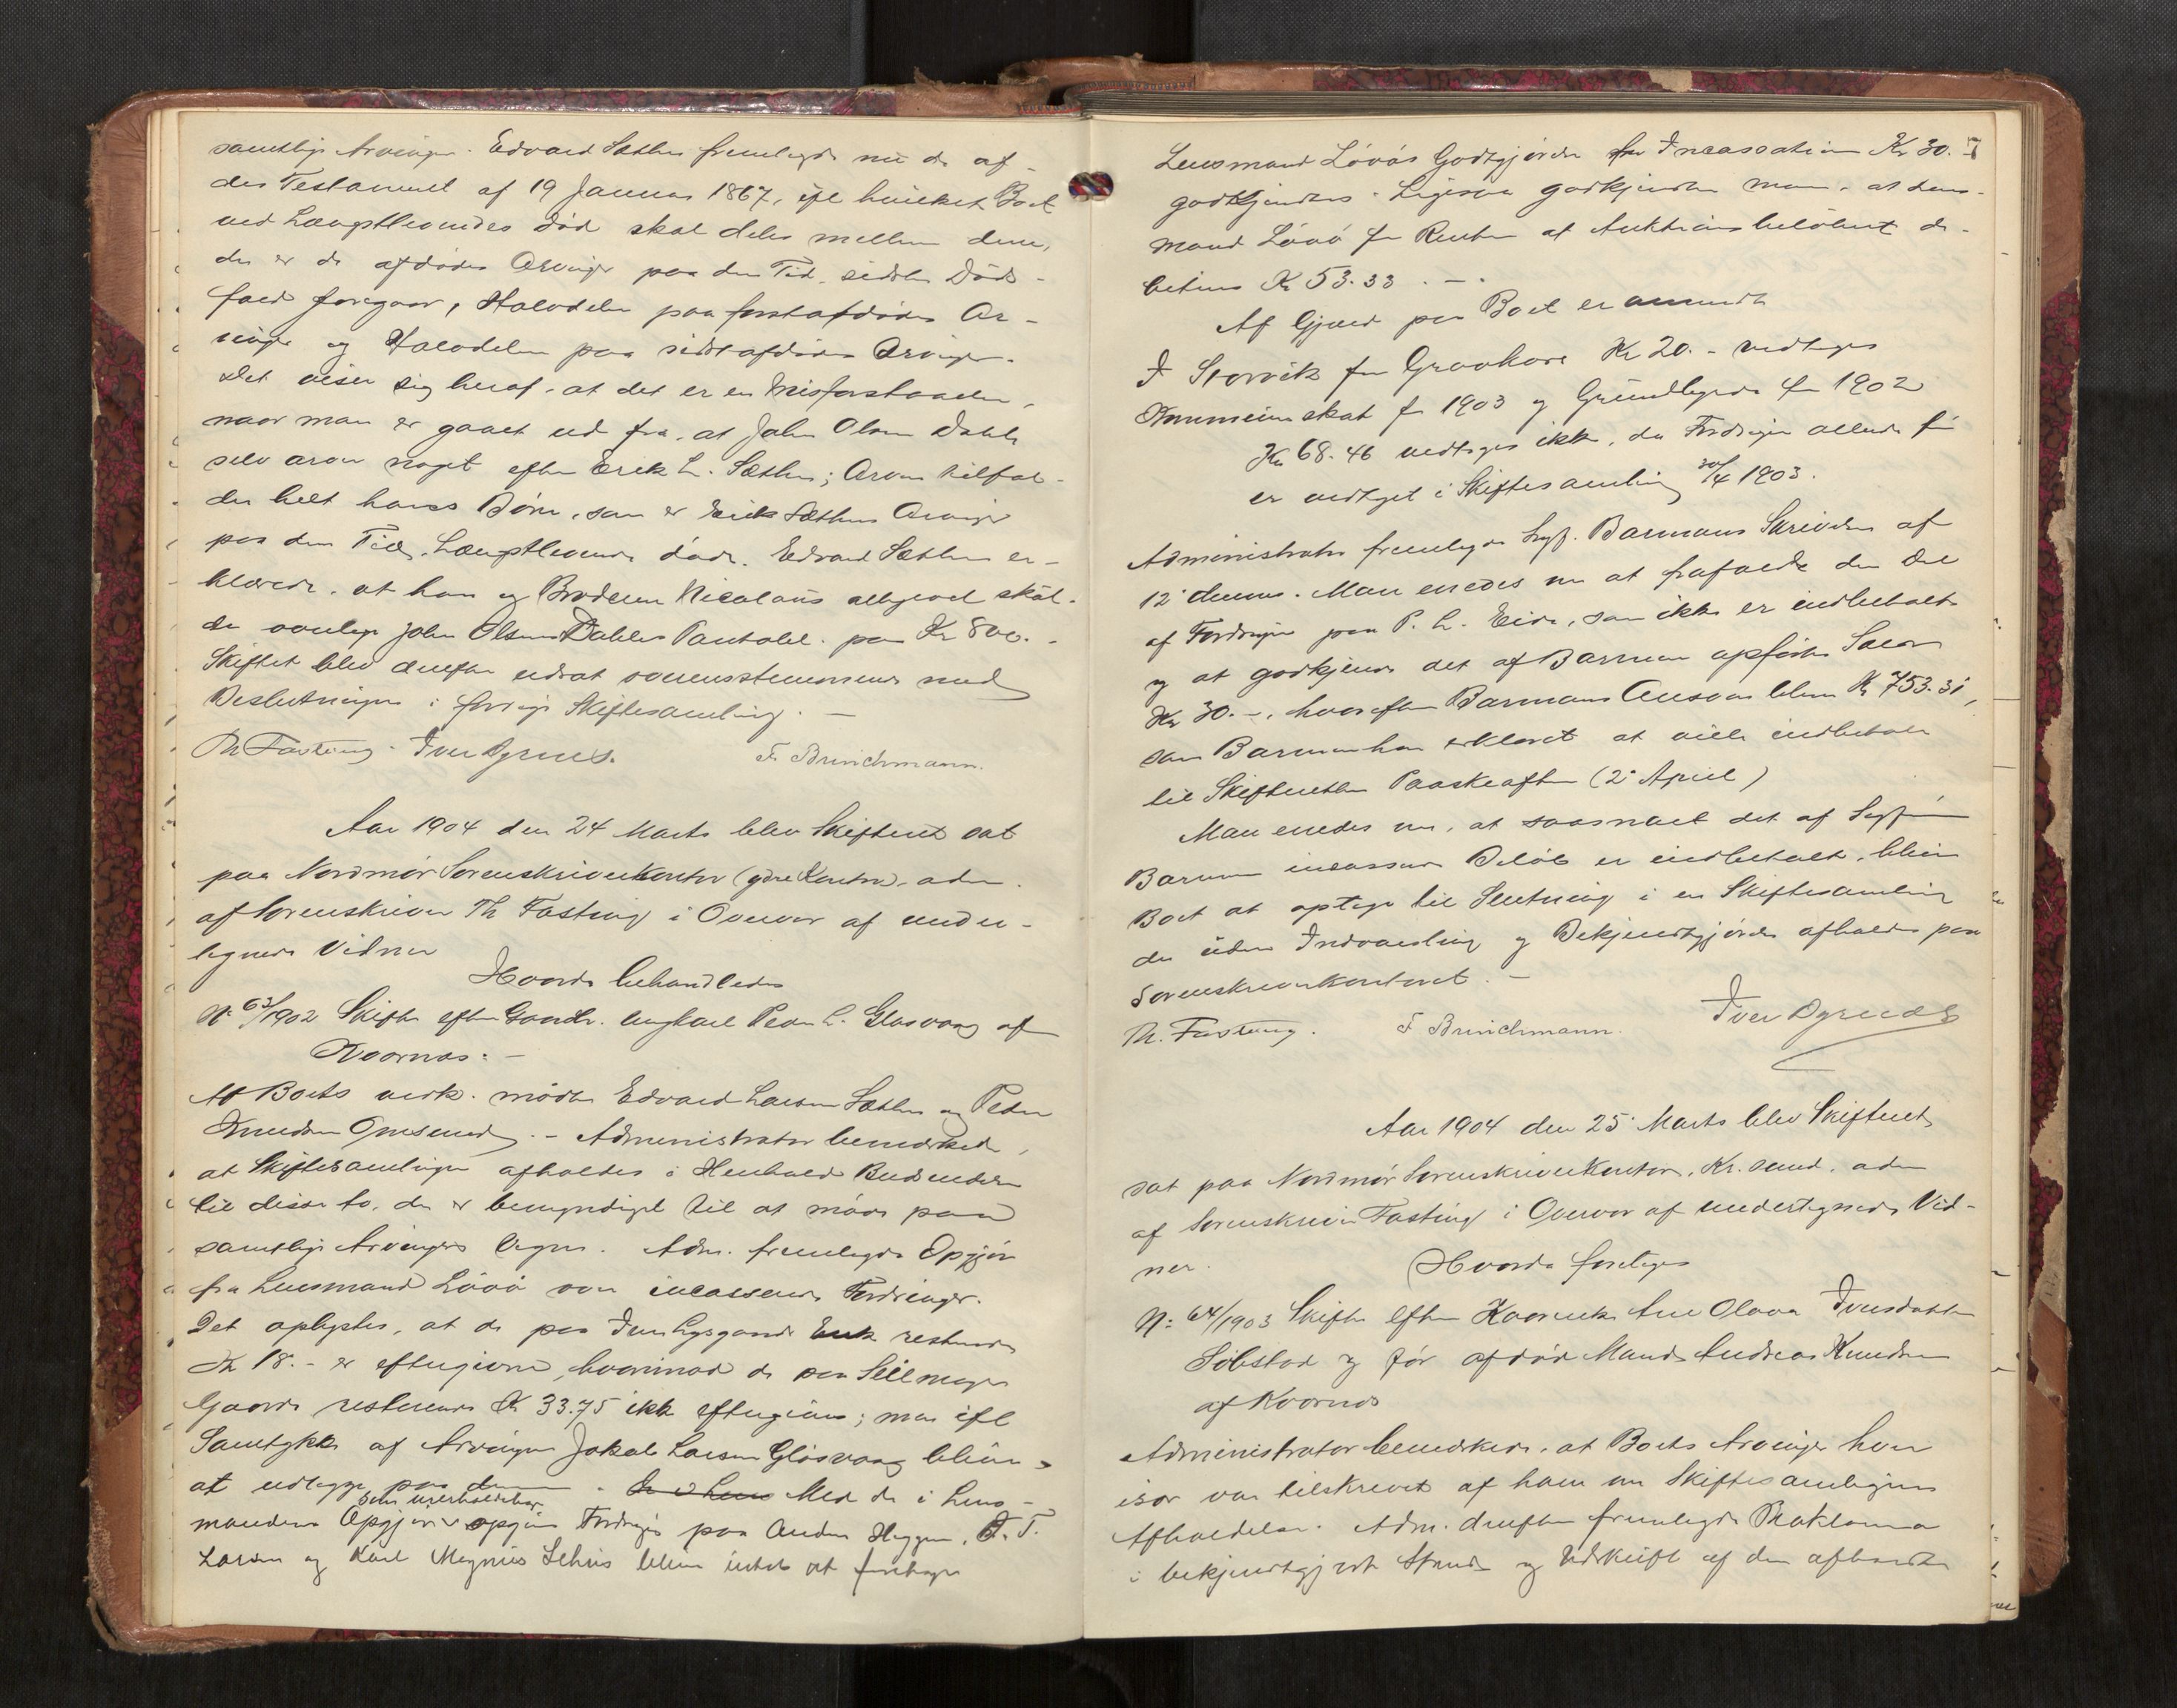 samtlige Arvinger. Edvard Sæther fremlagde nu de af-
des Testament af 19 Januar 1867, ifl hvilket Boet
ved Længstlevendes Død skal deles mellem dem,
der er de afdødes Arvinger paa den Tid, sidste Døds-
fald foregaar, Halvdelen paa førstafdødes Ar-
vinger og Halvdelen paa sidstafdødes Arvinger.
Det viser sig heraf, at det er en Misforstaaelse,
naar man er gaaet ud fra, at John Olsen Dahle
selv arver noget efter Erik L. Sæther; Arven tilfal-
der helt hans Børn, som er Erik Sæthers Arvinger
paa den Tid, Længstlevende døde. Edvard Sæther er-
klærede, at han og Broderen Nicolaus alligevel skul-
de overtage John Olsen Dahles Pantobl. paa Kr 800.-
Skiftet blev derefter udsat overensstemmende med
Beslutningen i forrige Skiftesamling. —
Th Fasting. Iver Ogrued. F. Brinchmann.
Aar 1904 den 24 Marts blev Skifteret sat
paa Nordmør Sorenskriverkontor (ydre Kontor), adm.
af Sorenskriver Th Fasting i Overvær af under-
tegnede Vidner
Hvorda behandledes
N: 63/1902 Skifte efter Gaardbr. ungkarl Peder L. Glasvaag af
Kvornæs: —
At Boets vedk. mødte Edvard Larsen Sæther og Peder
Knudsen - Administrator bemærkede,
at Skiftesamlingen afholdes i Henhold
til disse to, der er bemyndiget til at møde paa
samtlige Arvingers Vegne. Adm. fremlagde Opgjør
fra Lensmand Løvø over incasserede Fordringer.
Det oplystes, at de paa restende
Kr 18.- er eftergivne, hvorimod de paa
Gaarde resterende Kr 33.75 ikke eftergives; men ifl
Samtykke af Arvingen Jakob Larsen Glasvaag bliver
at udlægge paa denne. Med de i Lens-
mandens Opgjør som uerholdelige opgivne Fordringer paa Anders Heggem, T.
Larsen og Karl Magnus bliver intet at foretage
7
Lensmand Løvøs Godtgjørelse for Incassation Kr 30.-
godkjendtes. Ligesaa godkjendte man, at Lens-
mand Løvø for Renter af Auktionsbeløbet de-
beteres Kr 53.33. —
Af Gjæld paa Boet er anmeldt
I Storvik for Gravkore Kr 20.- vedtages
Kommuneskat for 1903 og Grundlegde for 1902
Kr 68.46 vedtages ikke, da Fordringen allerede før
er vedtaget i Skiftesamling 30/4 1903.
Administrator fremlagde Sagf. Barmans Skrivelse af
12' dennes. Man enedes om at frafalde den Del
af Fordringen paa P. L. Eide, som ikke er indbetalt
og at godkjende det af Barman opførte Salær
Kr 30.-, hvorefter Barmans Ansvar bliver Kr 753.31,
som Barman har erklæret at ville indbetale
til Skifteretten Paaskeaften (2' April)
Man enedes om, at saasnart det af Sagfører
Barman incasserede Beløb er indbetalt, bliver
Boet at optage til Slutning i en Skiftesamling
der uden Indvarsling og Bekjendtgjørelse afholdes paa
Sorenskriverkontoret. —
Th. Fasting. F Brinchmann. Iver Ogrued
Aar 1904 den 25' Marts blev Skifteret
sat paa Nordmør Sorenskriverkontor, Kr. sund, adm
af Sorenskriver Fasting i Overvær af undertegnede Vid-
ner.
Hvorda foretages
N: 64/1903 Skifte efter Ane Olava Iversdatter
Sobstad og før afdøde Mand Andreas Knudsen
af Kvornæs
Administrator bemærkede, at Boets Arvinger hver
især var tilskrevet af ham om Skiftesamlingens
Afholdelse. Adm. derefter fremlagde Proklama
i bekjendtgjort Stand og Udskrift af den afholdte